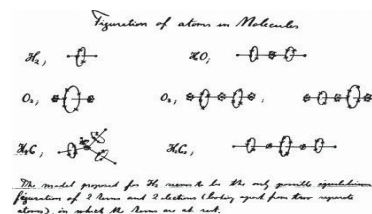 Figuration of atoms in Molecules
H₂, HO,
O₂, O₃,
H₄C, H₂C₂,
The model proposed for H₂ seems to be the only possible equilibrium
figuration of 2 kerns and 2 electrons (looking apart from two separate
atoms), in which the kerns are at rest.